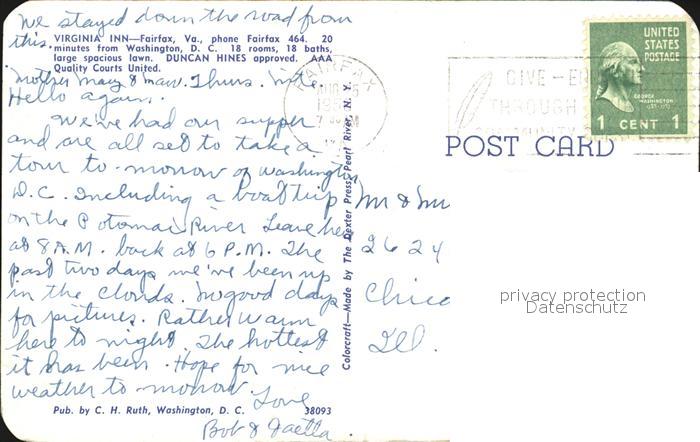 We stayed down the road from
this.
VIRGINIA INN—Fairfax, Va., phone Fairfax 464. 20
minutes from Washington, D. C. 18 rooms, 18 baths,
large spacious lawn. DUNCAN HINES approved. AAA
Quality Courts United.
Thurs. Nite
Hello again.
We've had our supper
and are all set to take a
tour to-morrow of Washington
D.C. Including a boat trip
on the Potomac River. Leave here
at 8 A.M. back at 6 P.M. The
past two days we've been up
in the clouds. No good days
for pictures. Rather warm
here to night. The hottest
it has been. Hope for nice
weather to morrow
Love
Bob &
Pub. by C. H. Ruth, Washington, D. C. 38093
Colorcraft—Made by The Dexter Press, Pearl River, N. Y.
FAIRFAX
GIVE
THROUGH
UNITED
STATES
POSTAGE
GEORGE
WASHINGTON
1 CENT 1
POST CARD
Mr & Mr
2624
Chica
Ill.
privacy protection
Datenschutz